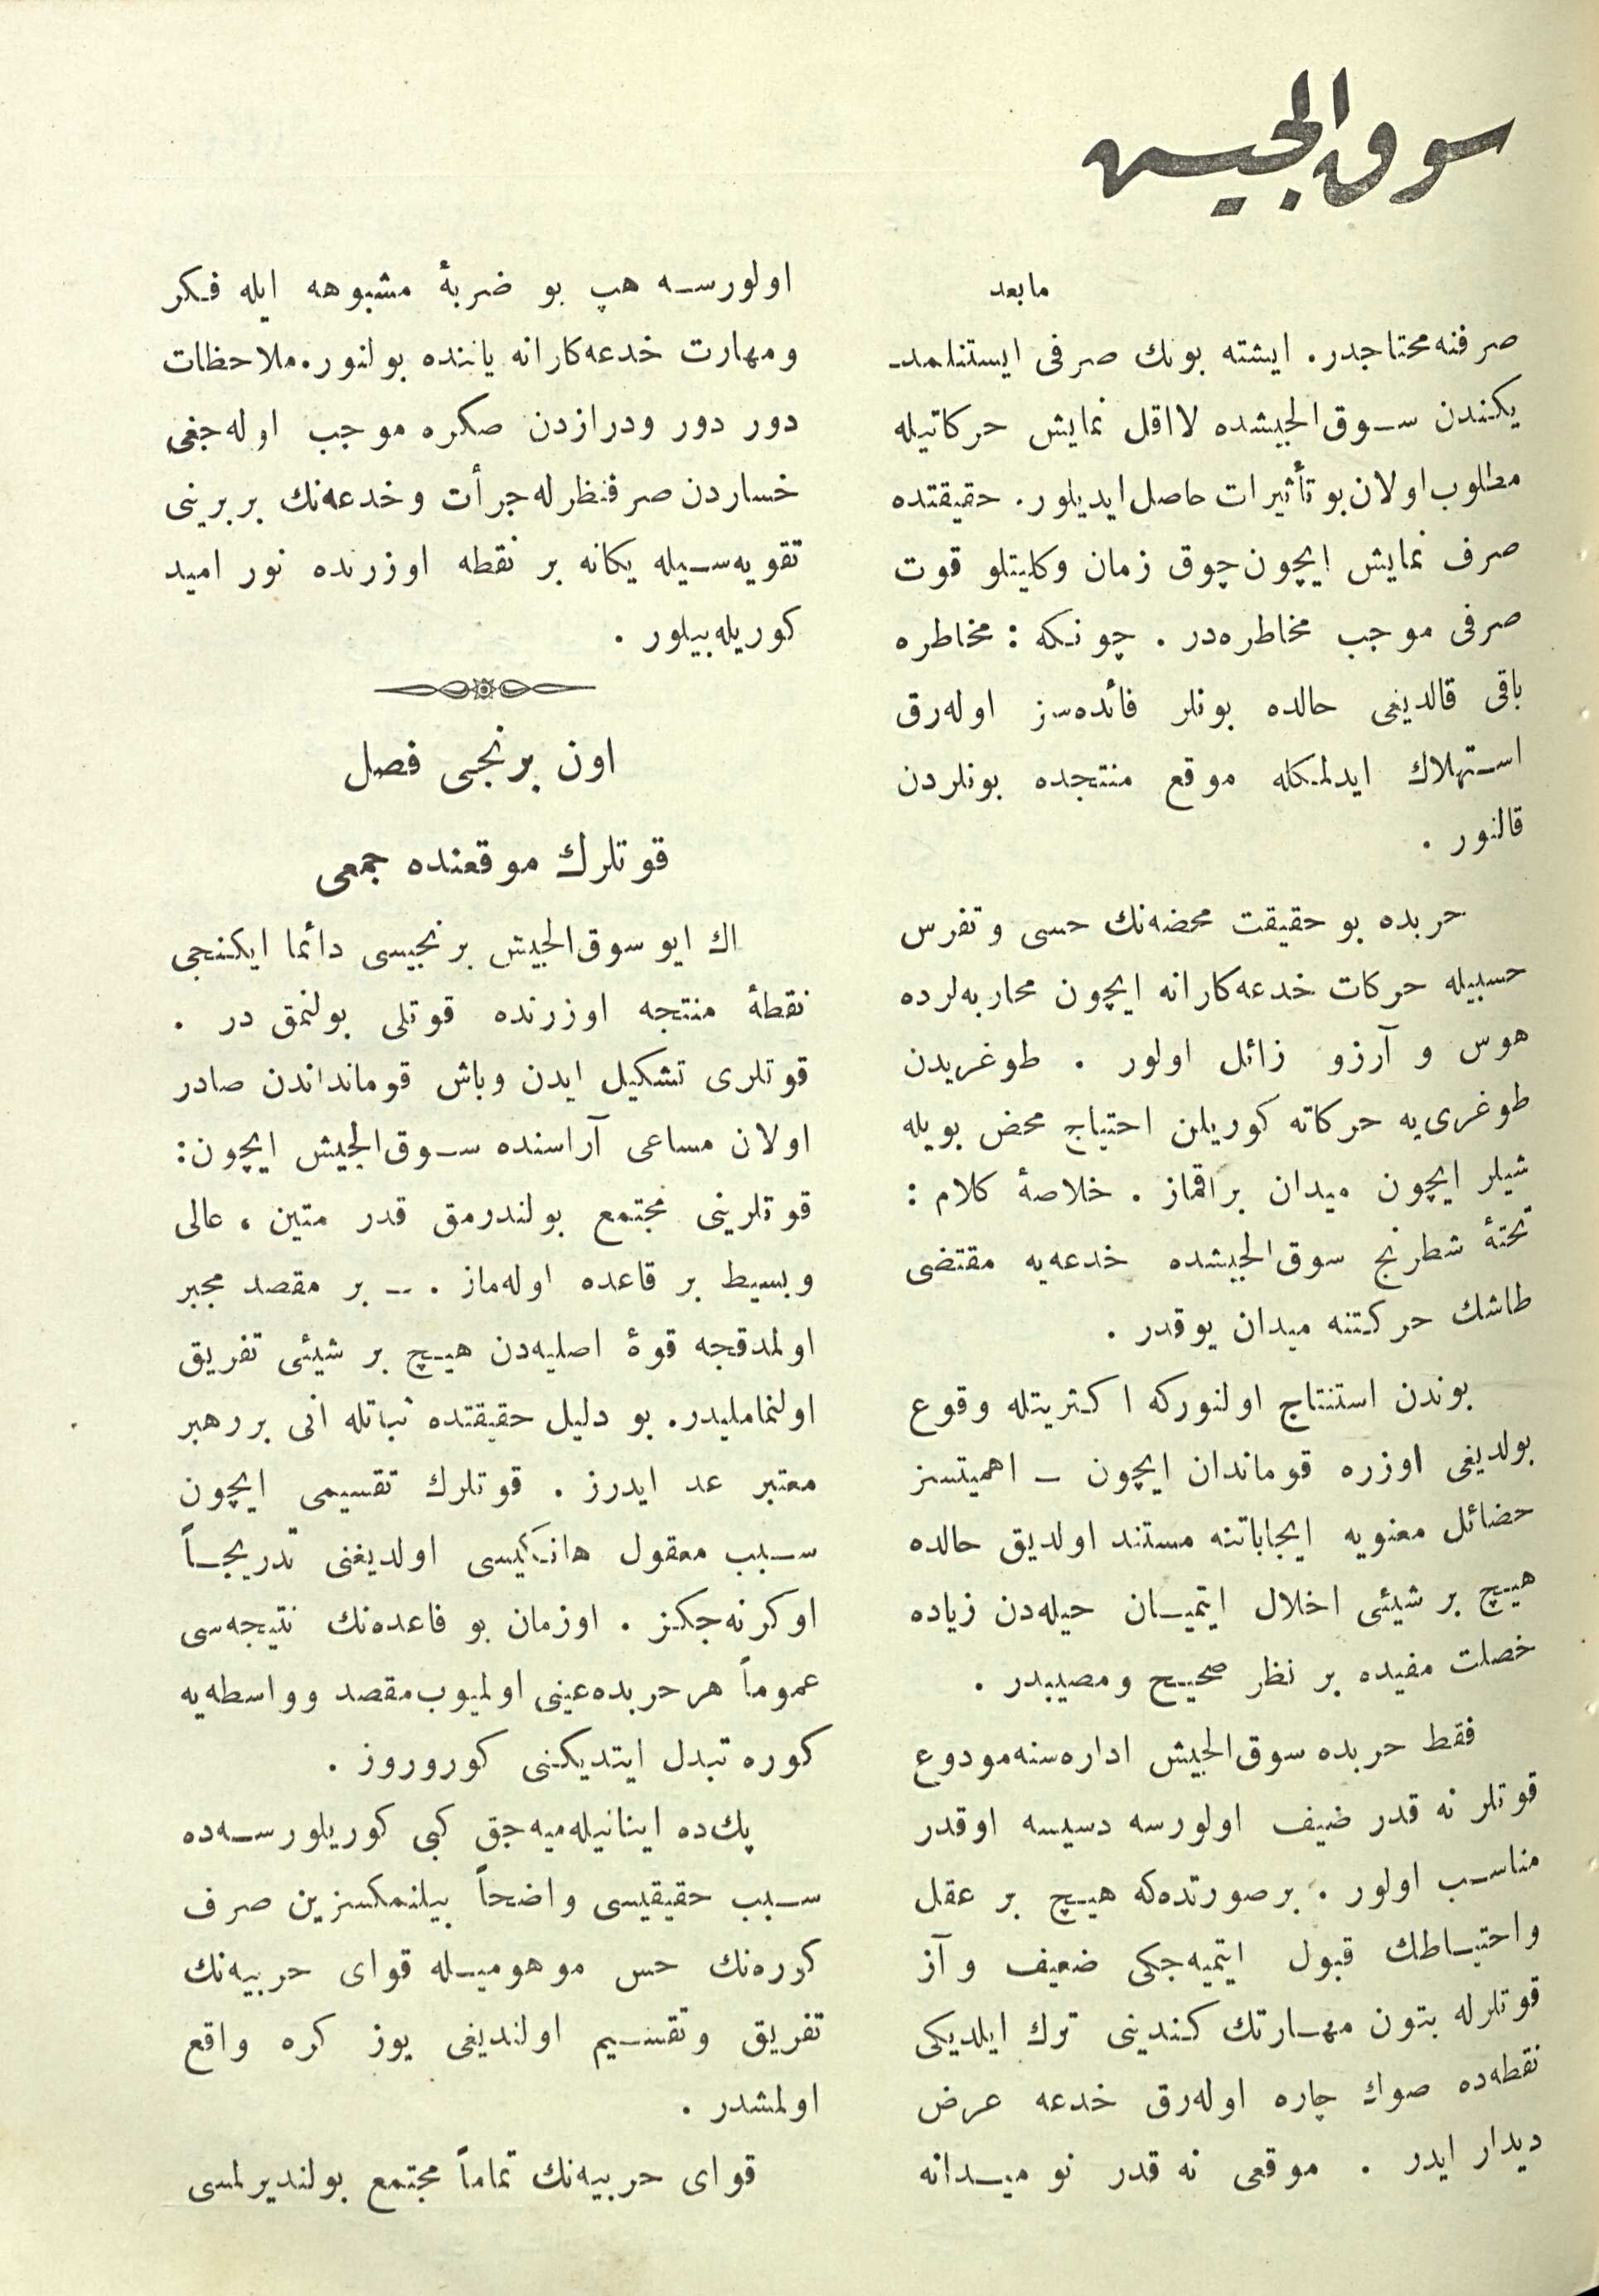 سوق الجیش
مابعد
صرفنه محتاجدر. ایشته بونك صرفی ایستنلمد-
یكندن سوق‌الجیشده لااقل نمایش حركاتیله
مطلوب اولان بو تأثیرات حاصل ایدیلور. حقیقتده
صرف نمایش ایچون چوق زمان وكلیتلو قوت
صرفی موجب مخاطره‌در . چونكه : مخاطره
باقی قالدیغی حالده بونلر فائده‌سز اوله‌رق
استهلاك ایدلمكله موقع منتجده بونلردن
قالنور .
حربده بو حقیقت محضه‌نك حسی وتفرس
حسبیله حركات خدعه‌كارانه ایچون محاربه‌لرده
هوس و آرزو زائل اولور . طوغریدن
طوغری‌یه حركاته كوریلن احتیاج محض بویله
شیلر ایچون میدان براقماز . خلاصۀ كلام :
تختۀ شطرنج سوق‌الجیشده خدعه‌یه مقتضی
طاشك حركتنه میدان یوقدر .
بوندن استنتاج اولنوركه اكثریتله وقوع
بولدیغی اوزره قوماندان ایچون – اهمیتسز
حضائل معنویه ایجاباتنه مستند اولدیق حالده
هیچ بر شیئی اخلال ایتمیان حیله‌دن زیاده
خصلت مفیده بر نظر صحیح ومصیبدر .
فقط حربده سوق‌الجیش اداره‌سنه مودوع
قوتلر نه قدر ضیف اولورسه دسیسه اوقدر
مناسب اولور . برصورتده‌كه هیچ بر عقل
واحتیاطك قبول ایتمیه‌جكی ضعیف وآز
قوتلرله بتون مهارتك كندینی ترك ایلدیكی
نقطه‌ده صوك چاره اوله‌رق خدعه عرض
دیدار ایدر . موقعی نه قدر نو میدانه
اولورسه هپ بو ضربۀ مشبوهه ایله فكر
ومهارت خدعه‌كارانه یاننده بولنور. ملاحظات
دور دور ودرازدن صكره موجب اوله‌جغی
خساردن صرفنظرله جرأت وخدعه‌نك بربرینی
تقویه‌سیله یكانه بر نقطه اوزرنده نور امید
كوریله‌بیلور .
اون برنجی فصل
قوتلرك موقعنده جمعی
اك ایو سوق‌الجیش برنجیسی دائما ایكنجی
نقطۀ منتجه اوزرنده قوتلی بولنمق در .
قوتلری تشكیل ایدن وباش قومانداندن صادر
اولان مساعی آراسنده سوق‌الجیش ایچون:
قوتلرینی مجتمع بولندرمق قدر متین ، عالی
وبسیط بر قاعده اوله‌ماز . – بر مقصد مجبر
اولمدقجه قوۀ اصلیه‌دن هیچ بر شیئی تفریق
اولنمامليدر. بو دلیل حقیقتده ثباتله انی بررهبر
معتبر عد ایدرز . قوتلرك تقسیمی ایچون
سبب معقول هانكیسی اولدیغنی تدریجاً
اوكرنه‌جكز . اوزمان بو قاعده‌نك نتیجه‌سی
عموماً هر حربده عینی اولمیوب مقصد وواسطه‌یه
كوره تبدل ایتدیكنی كوروروز .
پك‌ده اینانیله‌میه‌جق كبی كوریلورسه‌ده
سبب حقیقیسی واضحاً بیلنمكسزین صرف
كرره‌نك حس موهومیله قوای حربیه‌نك
تفریق وتقسیم اولندیغی یوز كره واقع
اولمشدر .
قوای حربیه‌نك تماماً مجتمع بولندیرلمسی